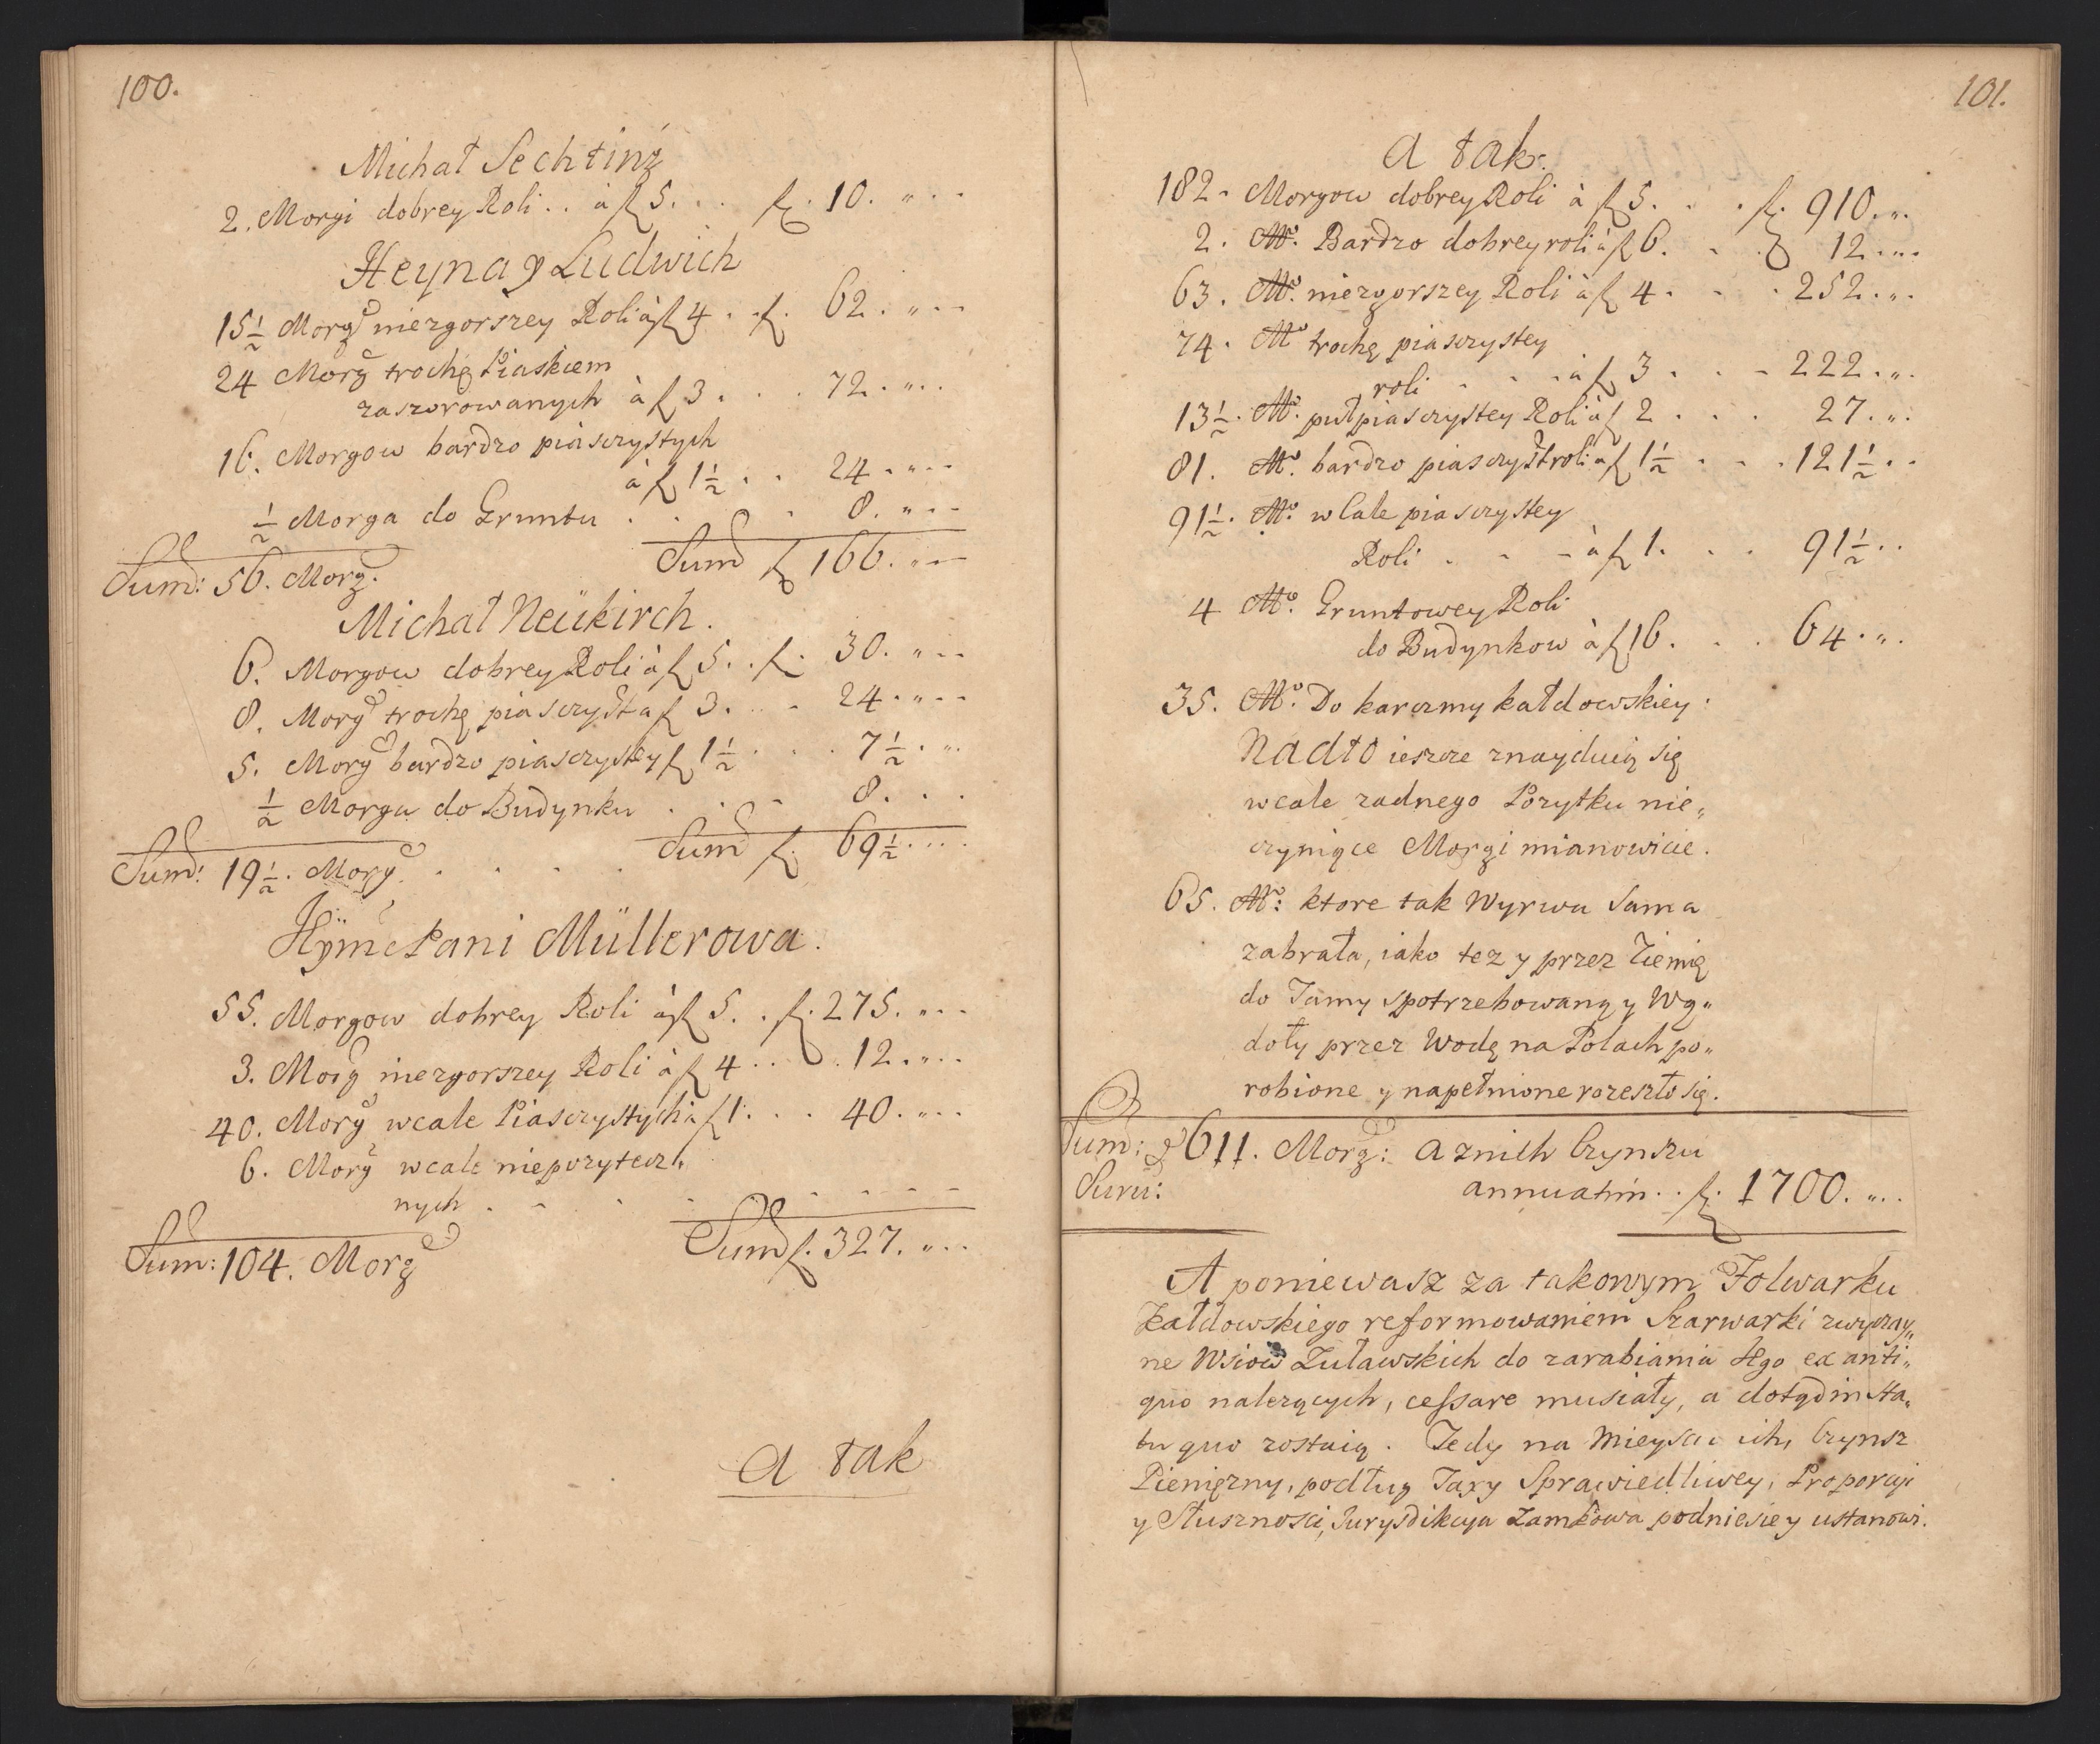 100.
Michał Sechting
2. Morgi dobrey Roli . . à fl 5. . . fl. 10. „ - -
Heyna y Ludwich
15½ Morg niezgorszey Roli à fl 4 . . fl. 62. „ - -
24 Morg trochę Piaskiem
zaszorowanych à fl 3 . . . 72. „ . .
16. Morgow bardzo piasczystych
à fl 1½ . . 24. „ - -
½ Morga do Gruntu . . . 8. „ - -
Sum: 56. Morg. Sum fl 166. „ - -
Michał Neükirch.
6. Morgow dobrey Roli à fl 5. . fl. 30. „ - -
8. Morg trochę piasczyst à fl 3. . . 24. „ - -
5. Morg bardzo piasczystey fl 1½ . . . 7½. „ .
½ Morga do Budynku . . . 8. . .
Sum: 19½. Morg. . . . . Sum fl. 69½ . . .
Jeymć Pani Müllerowa.
55. Morgow dobrey Roli à fl 5. . fl. 275. „ . .
3. Morg niezgorszey Roli à fl 4 . . . 12. „ . .
40. Morg wcale Piasczystych à fl 1. . . . 40. „ . .
6. Morg wcale niepozytecz„
nych . - . - . - - -
Sum: 104. Morg Sum fl. 327. „ . .
a tak
101.
a tak.
182. Morgow dobrey Roli à fl 5. . . fl. 910. „ .
2. M⁰. Bardzo dobrey roli à fl 6. . . 12. „ .
63. M⁰. niezgorszey Roli à fl 4 . . . 252. „ .
74. M⁰ trochę piasczystey
roli . - . à fl 3 . . - 222. „ .
13½. M⁰. puł piasczystey Roli à fl 2 . . . 27. „ .
81. M⁰. bardzo piasczyst roli à fl 1½ . . . 121½ . .
91½. M⁰. wcale piasczystey
Roli . - - à fl 1. . . 91½ . .
4 M⁰. Gruntowey Roli
do Budynkow à fl 16. . . 64. „ .
35. M⁰. Do karczmy kałdowskiey.
Nadto ieszcze znayduią się
wcale zadnego Pozytku nie„
czyniące Morgi mianowicie.
65. M⁰: ktore tak Wyrwa Sama
zabrała, iako tez y przez Ziemię
do Tamy spotrzebowaną y Wg„
doły przez Wodę na Polach po„
robione y napełnione rozeszło się.
Sum: 611. Morg: a znich Czynszu
Suru: annuatim . . fl. 1700. „ . .
A poniewasz za takowym Folwarku
Kałdowskiego reformowaniem Szarwarki zwyczay„
ne Wsiow Zuławskich do zarabiania tego ex anti„
quo nalezących, cessare musiały, a dotąd in sta„
tu quo zostaią. Tedy na Mieyscu ich, Czynsz
Pienięzny, podług Taxy Sprawiedliwey, Proporcyi
y Słusznosci, Jurysdikcya Zamkowa podniesie y ustanowi.